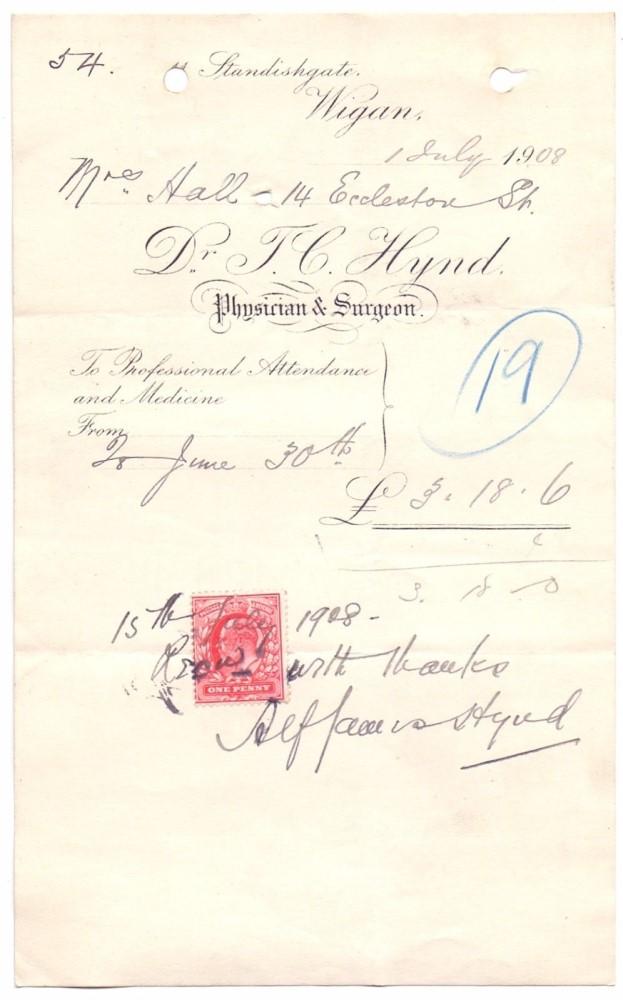 54. Standishgate.
Wigan.
1 July 1908
Mrs Hall - 14 Eccleston St.
Dr. T. C. Hynd.
Physician & Surgeon.
To Professional Attendance
and Medicine
From
To June 30th
19
£ 3. 18. 6
6
3. 18 - 0
15th July 1908 -
with thanks
Hynd
ONE PENNY